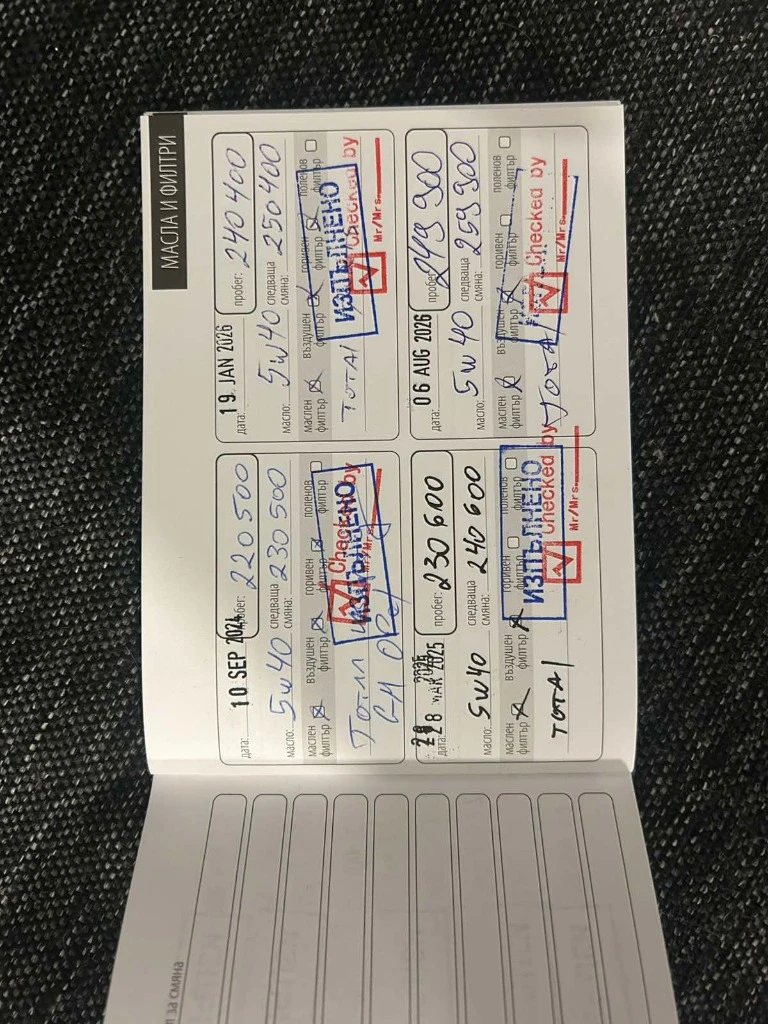 МАСЛА И ФИЛТРИ
дата: 10 SEP 2024 пробег: 220 500
масло: 5W40 следваща смяна: 230 500
маслен филтър въздушен филтър горивен филтър поленов филтър
Checked by
ИЗПЪЛНЕНО
Mr/Mrs.
дата: 19. JAN 2026 пробег: 240 400
масло: 5W40 следваща смяна: 250 400
маслен филтър въздушен филтър горивен филтър поленов филтър
ТОТАl
ИЗПЪЛНЕНО
Checked by
Mr/Mrs.
дата: 28 MAR 2025 пробег: 230 600
масло: 5W40 следваща смяна: 240 600
маслен филтър въздушен филтър горивен филтър поленов филтър
ТОТАl
ИЗПЪЛНЕНО
Checked by
Mr/Mrs.
дата: 06 AUG 2026 пробег: 249 900
масло: 5W40 следваща смяна: 259 900
маслен филтър въздушен филтър горивен филтър поленов филтър
Тотаl
Checked by
Mr/Mrs.
за смяна